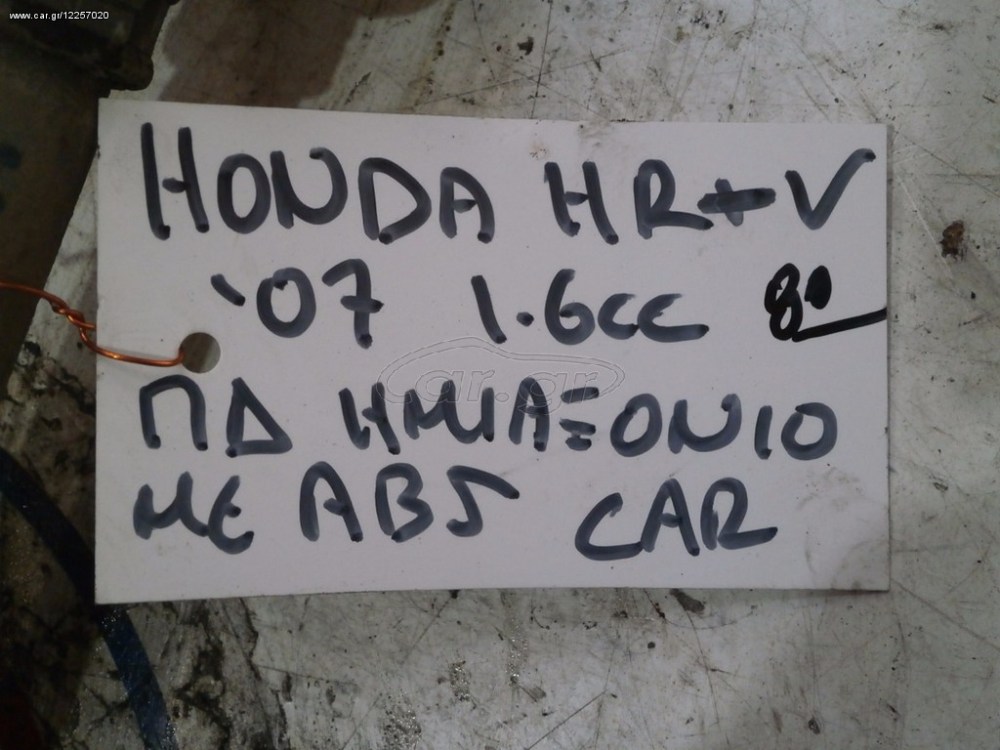 www.car.gr/12257020
HONDA HR-V
'07 1.6cc 80
ΠΔ ΗΜΙΑΞΟΝΙΟ
car.gr
ΜΕ ABS CAR